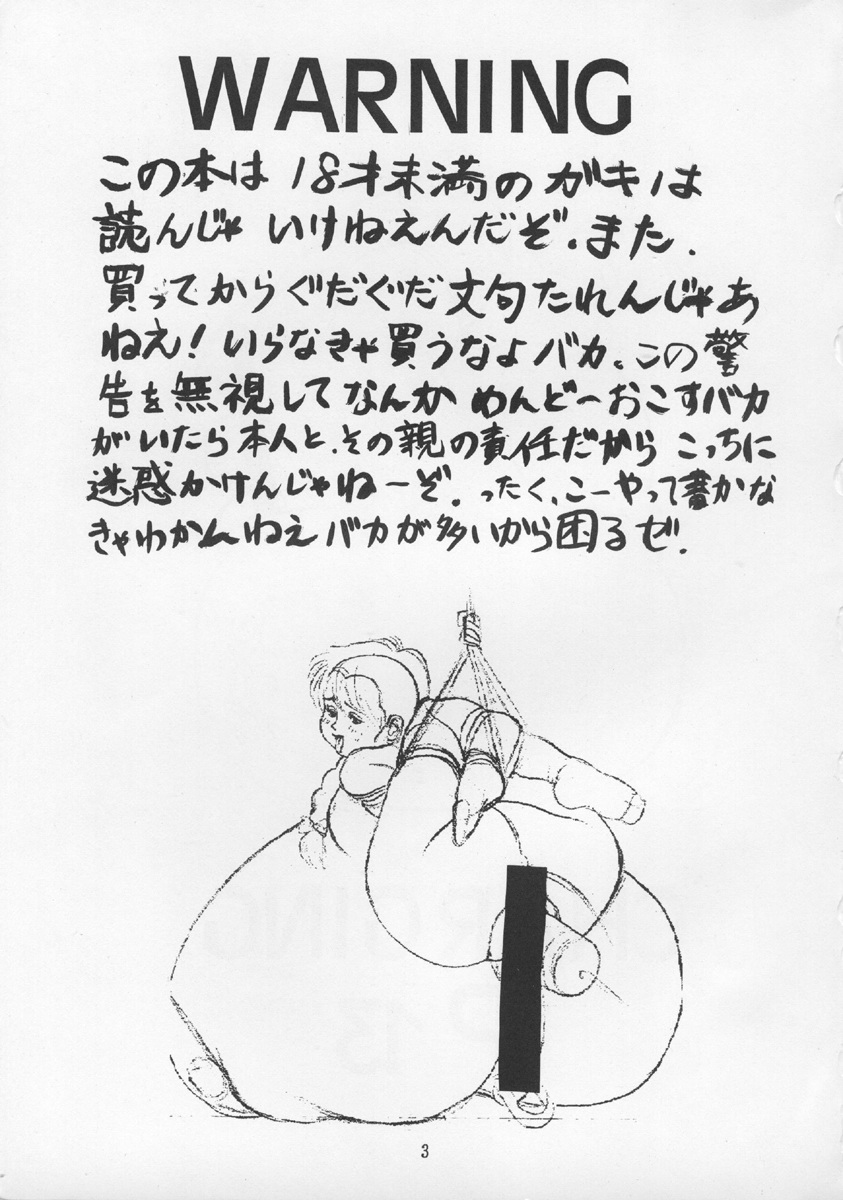 WARNING
この本は 18才未満のガキは
読んじゃ いけねえんだぞ.また.
買ってからぐだぐだ文句たれんじゃあ
ねえ!いらなきゃ買うなよバカ、この警
告を無視してなんか めんどーおこすバカ
がいたら本人と、その親の責任だから こっちに
迷惑かけんじゃねーぞ. ったく、こーやって書かな
きゃわかんねえバカが多いから困るゼ.
3